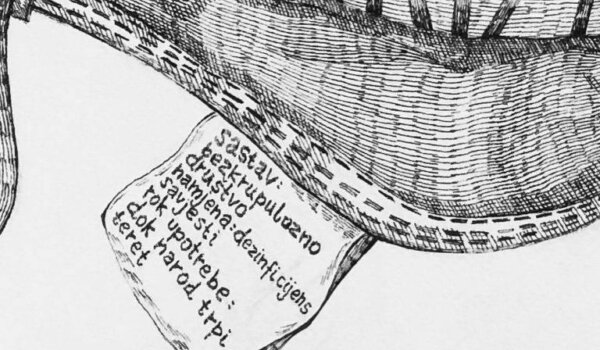 sastav:
beskrupulozno
društvo
namjena: dezinficijens
savjesti
rok upotrebe:
dok narod trpi
teret